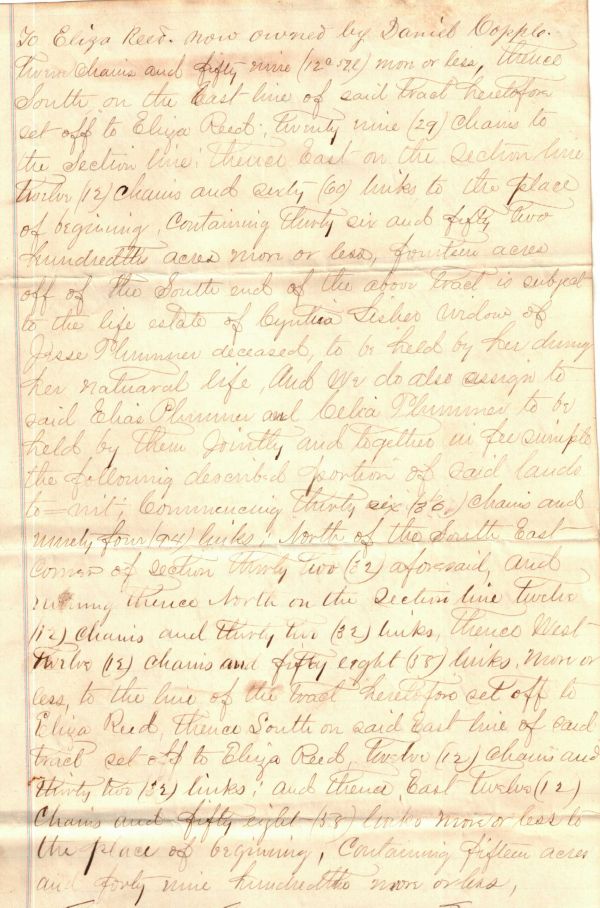 To Eliza Reed. now owned by Daniel Copple.
twelve chains and fifty nine (12 c 59 l) more or less, thence
South on the East line of said tract heretofore
set off to Eliza Reed; twenty nine (29) chains to
the Section line; thence East on the section line
twelve (12) chains and sixty (60) links to the place
of begining, Containing thirty six and fifty two
hundredths acres more or less, fourteen acres
off of the South end of the above tract is subject
to the life estate of Cyntha Lisher widow of
Jesse Plummer deceased, to be held by her during
her natuaral life, And We do also assign to
said Elias Plummer and Celia Plummer to be
held by them Jointly and together in fee simple
the following described portion of said lands
to=wit; Commencing thirty six (36) chains and
ninety four (94) links, North of the South East
corner of section thirty two (32) aforesaid, and
runing thence North on the section line twelve
(12) chains and thirty two (32) links, thence West
twelve (12) chains and fifty eight (58) links, more or
less, to the line of the tract heretofore set off to
Eliza Reed, thence South on said East line of said
tract set off to Eliza Reed, twelve (12) chains and
thirty two (32) links; and thence East twelve (12)
chains and fifty eight (58) links more or less to
the place of begining, Containing fifteen acres
and forty nine hundredths more or less,